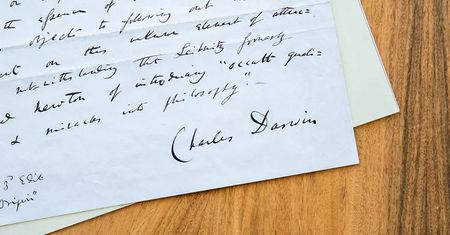 the essence of
objects to following out
on this unknown element of attrac-
notwithstanding that Leibnitz formerly
Newton of introducing "occult quali-
& miracles into philosophy."
Charles Darwin
3d Edit
Origin"